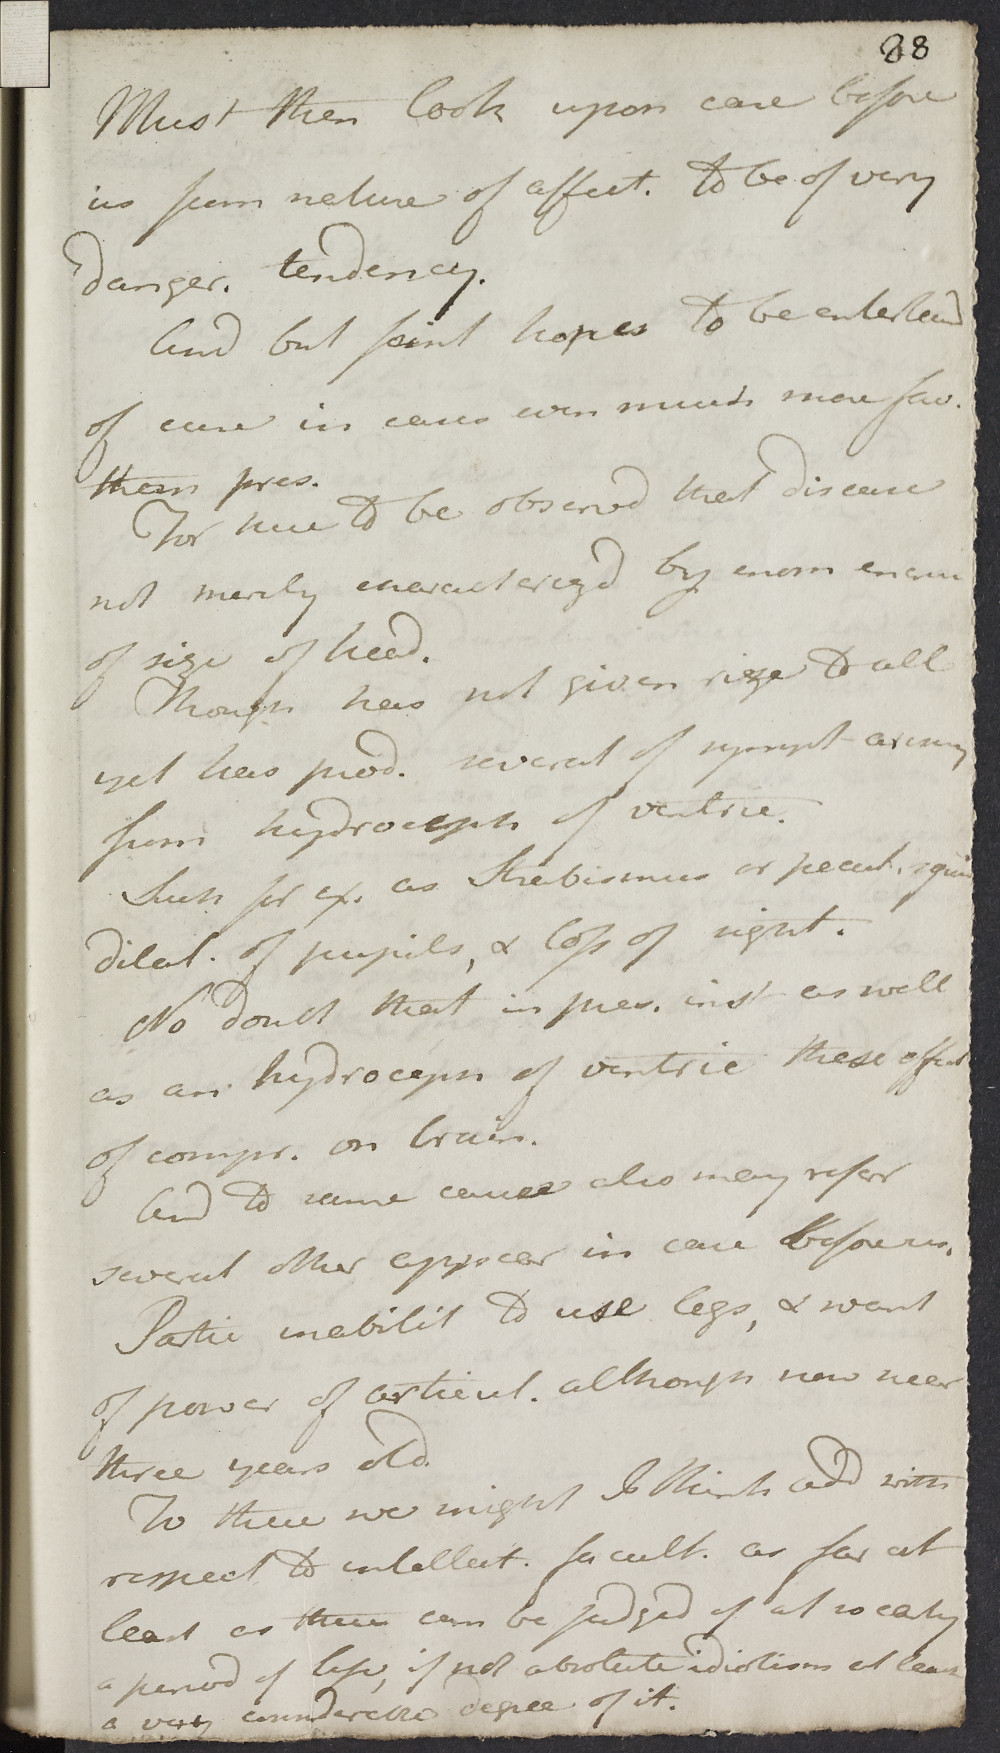 88
Must then look upon case before
us from nature of affect. to be of very
danger. tendency.
And but faint hopes to be entertaind
of cure in cases even much more fav.
then pres.
For here to be observed that disease
not merely characterizd by enorm encrea
of size of head.
Though has not given rise to all
yet has prod. several of sympt arising
from hydroceph of ventric.
Such for ex. as Strabismus or pecul. squin
dilat. of pupils, & loss of sight.
No doubt that in pres. inst as well
as an hydroceph of ventric these effect
of compr. on brain.
And to same cause also may refer
several other appear in case before us.
Partic inabilit to use legs, & want
of power of articul. although now near
three years old.
To these we might I think add with
respect to intellect. facult. as far at
least as these can be judged of at so early
a period of life, if not absolute idiotism at least
a very considerable degree of it.